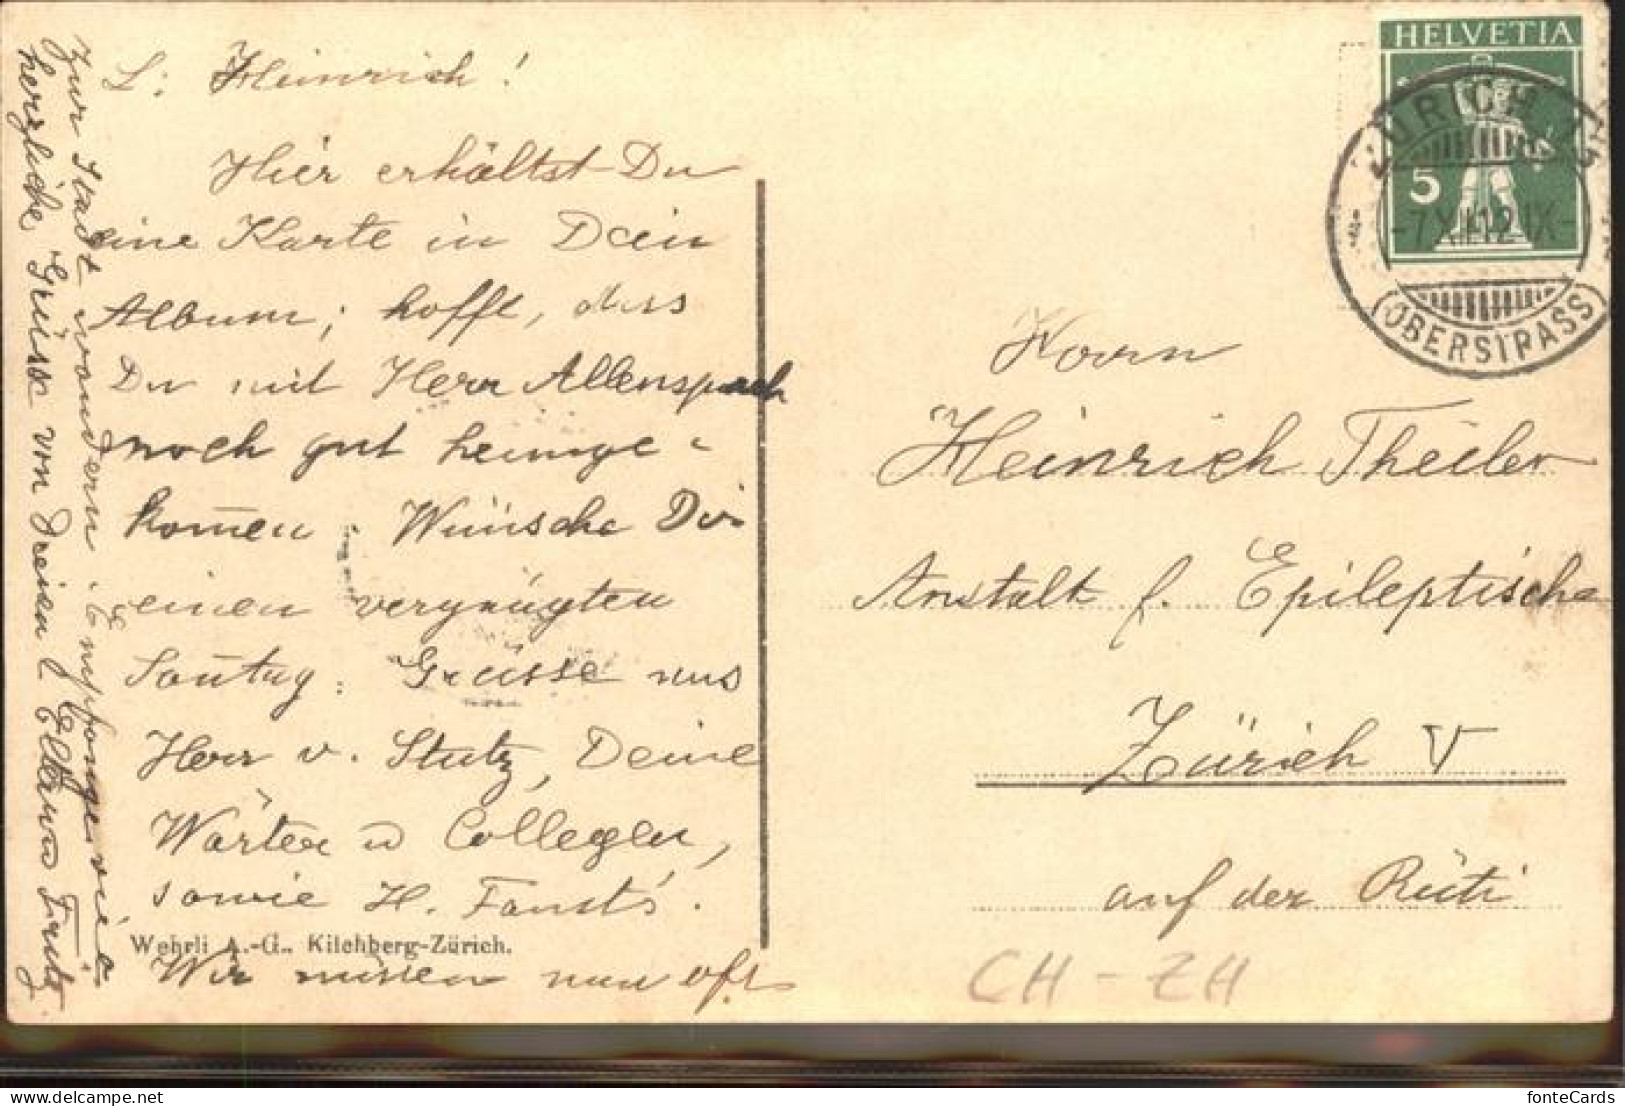 L. Heinrich!
Hier erhältst Du
eine Karte in Dein
Album; hoffe, dass
Du mit Herr Allenspach
noch gut heimge-
kommen. Wünsche Dir
einen vergnügten
Sonntag. Grüsse aus
Herr v. Stutz, Deine
Wärter u Collegen,
sowie H. Fausts.
Wir müssen nun oft
zur Stadt wandern. Empfange viele
herzliche Grüsse von Deinen Eltern Fritz
Wehrli A.-G., Kilchberg-Zürich.
HELVETIA
5
ZÜRICH
-7.XII.12.IX-
(OBERSTRASS)
Herrn
Heinrich Theiler
Anstalt f. Epileptische
Zürich V
auf der Rüti
CH - ZH
fonteCards